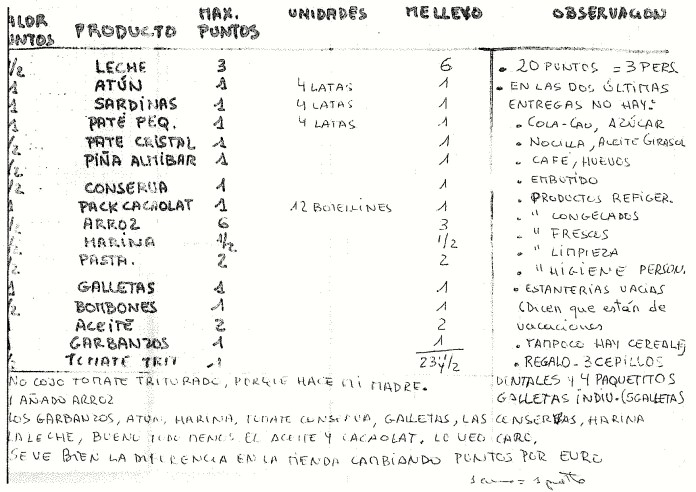 ALOR UNTOS PRODUCTO MAX. PUNTOS UNIDADES ME LLEVO OBSERVACION
1/2 LECHE 3 6 • 20 PUNTOS = 3 PERS.
1 ATÚN 1 4 LATAS 1 • EN LAS DOS ÚLTIMAS
1 SARDINAS 1 4 LATAS 1 ENTREGAS NO HAY:
1 PATÉ PEQ. 1 4 LATAS 1 • COLA-CAO, AZÚCAR
1/2 PATE CRISTAL 1 1 • NOCILLA, ACEITE GIRASOL
1/2 PIÑA ALMIBAR 1 1 • CAFÉ, HUEVOS
• EMBUTIDO
1/2 CONSERVA 1 1 • PRODUCTOS REFIGER.
1 PACK CACAOLAT 1 12 BOTELLINES 1 • " CONGELADOS
ARROZ 6 3 • " FRESCOS
HARINA 1/2 1/2 • " LIMPIEZA
PASTA. 2 2 • " HIGIENE PERSON.
1 GALLETAS 1 1 • ESTANTERÍAS VACIAS
1/2 BOMBONES 1 1 (Dicen que están de
ACEITE 2 2 vacaciones
GARBANZOS 1 1 • TAMPOCO HAY CEREALES
TOMATE TRIT 1 23 1/2 • REGALO - 3 CEPILLOS
NO COJO TOMATE TRITURADO, PORQUE HACE MI MADRE. DINTALES Y 4 PAQUETITOS
Y AÑADO ARROZ GALLETAS INDIV. (5 GALLETAS
LOS GARBANZOS, ATUN, HARINA, TOMATE CONSERVA, GALLETAS, LAS CONSERVAS, HARINA
LA LECHE, BUENO TODO MENOS EL ACEITE Y CACAOLAT. LO VEO CARO.
SE VE BIEN LA DIFERENCIA EN LA TIENDA CAMBIANDO PUNTOS POR EURO
1 euro = 1 punto